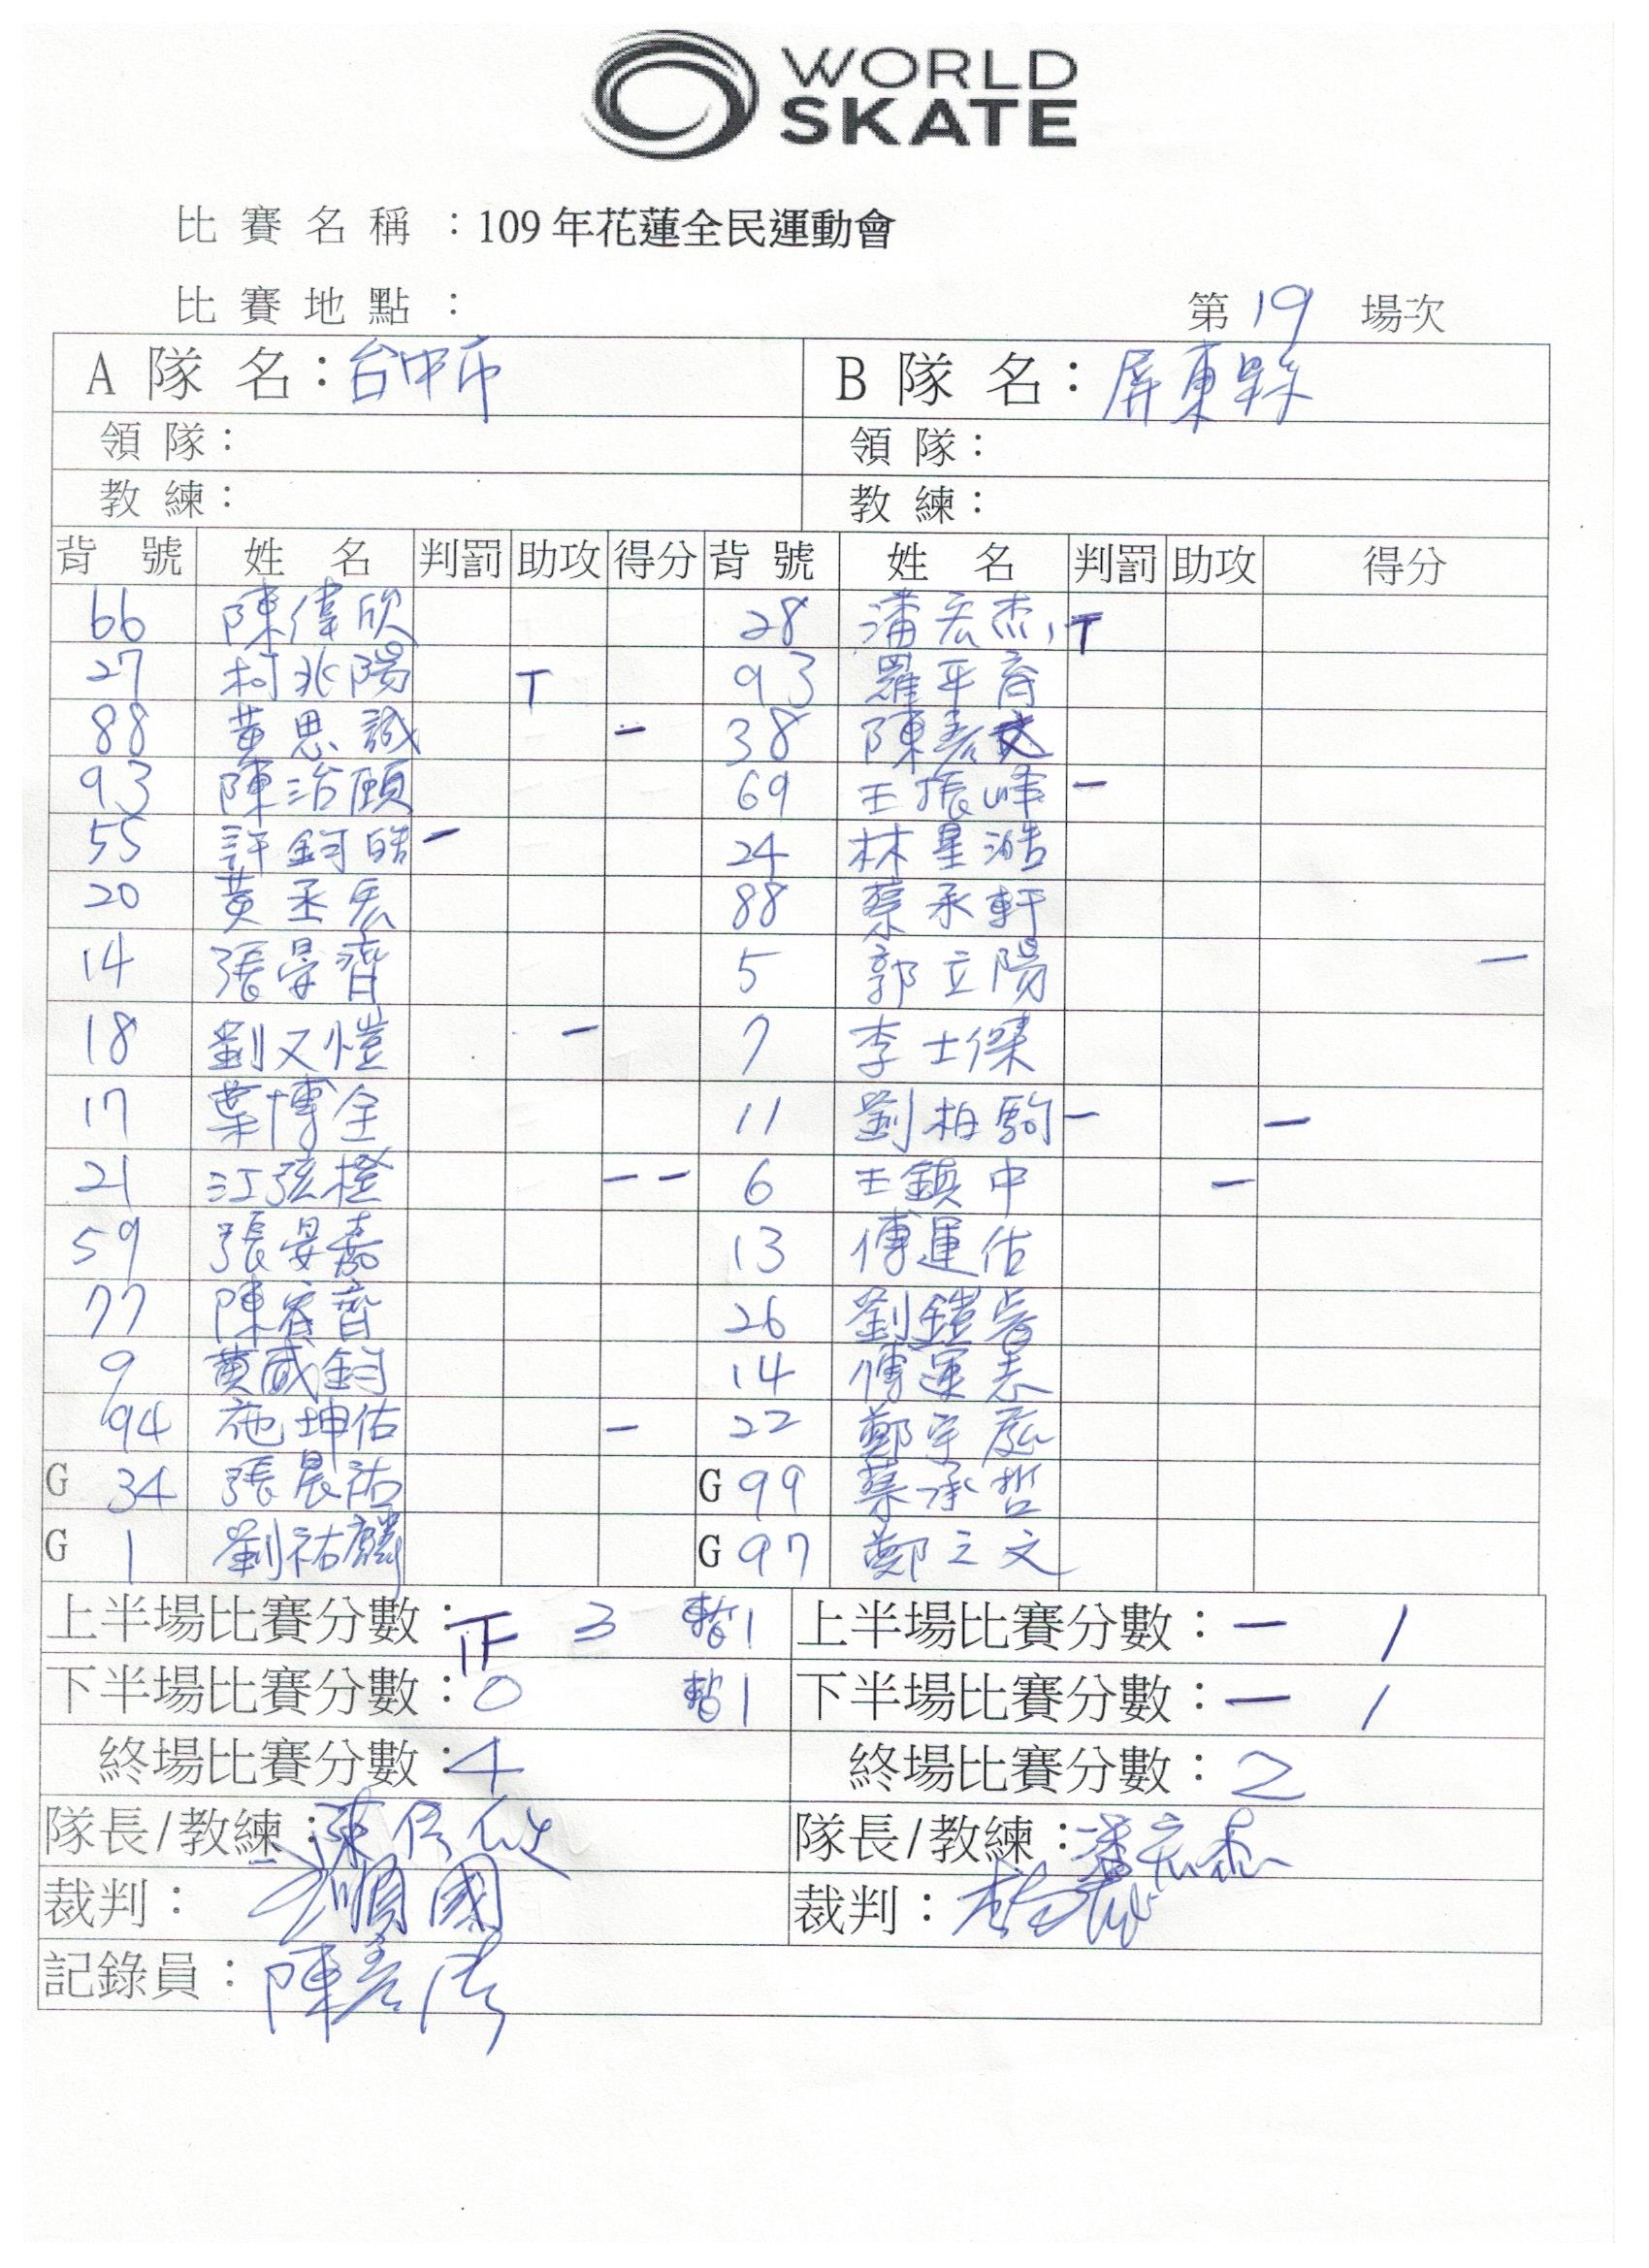 WORLD
SKATE
比賽名稱：109年花蓮全民運動會
比賽地點： 第 19 場次
A 隊 名：台中市 B 隊 名：屏東縣
領隊： 領隊：
教練： 教練：
背號 姓名 判罰 助攻 得分 背號 姓名 判罰 助攻 得分
66 陳偉欣 28 潘宏杰 T
27 柯兆陽 T 93 羅平育
88 黃思誠 一 38 陳彥文
93 陳治頤 69 王振峰 一
55 許鈳皓 一 24 林星澔
20 黃丞宏 88 蔡承軒
14 張晏齊 5 郭立陽 一
18 劉又愷 一 7 李士傑
17 葉博全 11 劉柏駒 一 一
21 江弦橙 一 一 6 王鎮中 一
59 張晏嘉 13 傅運佑
77 陳睿 26 劉鎧
9 黃威鈞 14 傅運志
94 施坤佑 一 22 鄭宇
G 34 張晨祐 G 99 蔡承哲
G 1 劉祐麟 G 97 鄭立文
上半場比賽分數： 3 暫1 上半場比賽分數：一 1
下半場比賽分數：0 暫1 下半場比賽分數：一 1
終場比賽分數：4 終場比賽分數：2
隊長/教練：陳 隊長/教練：潘宏杰
裁判： 順國 裁判：
記錄員：陳彥